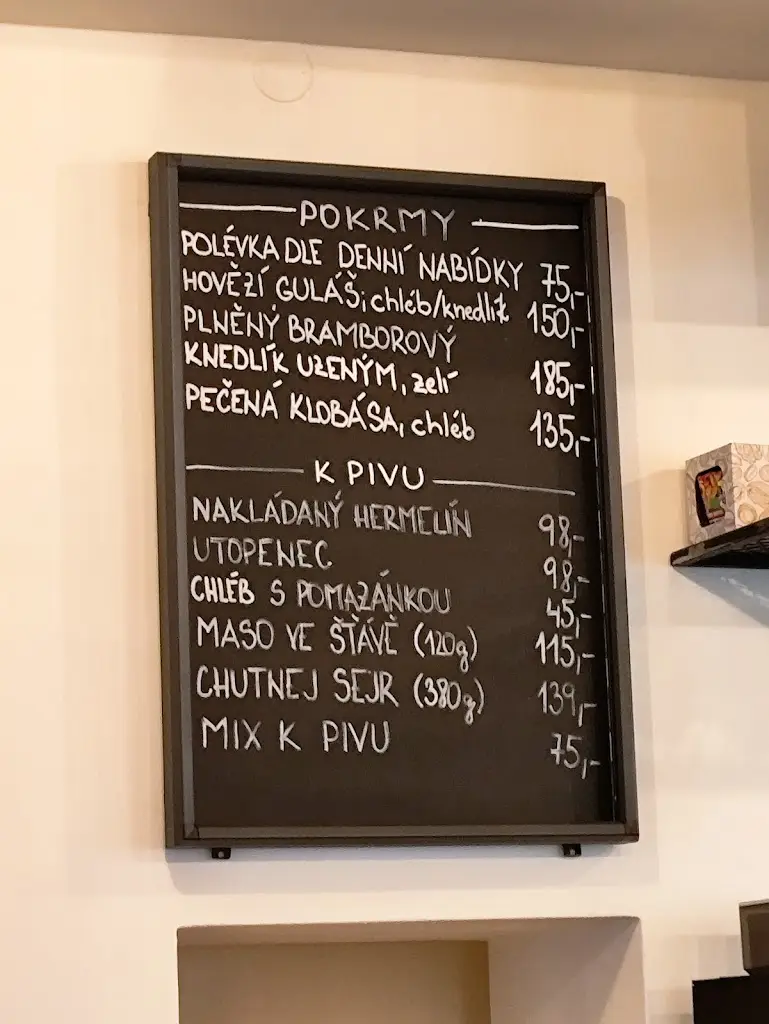 POKRMY
POLÉVKA DLE DENNÍ NABÍDKY 75,-
HOVĚZÍ GULÁŠ, chléb/knedlík 150,-
PLNĚNÝ BRAMBOROVÝ
KNEDLÍK UZENÝM, zelí 185,-
PEČENÁ KLOBÁSA, chléb 135,-
K PIVU
NAKLÁDANÝ HERMELÍN 98,-
UTOPENEC 98,-
CHLÉB S POMAZÁNKOU 45,-
MASO VE ŠŤÁVĚ (120g) 115,-
CHUTNEJ SEJR (380g) 139,-
MIX K PIVU 75,-